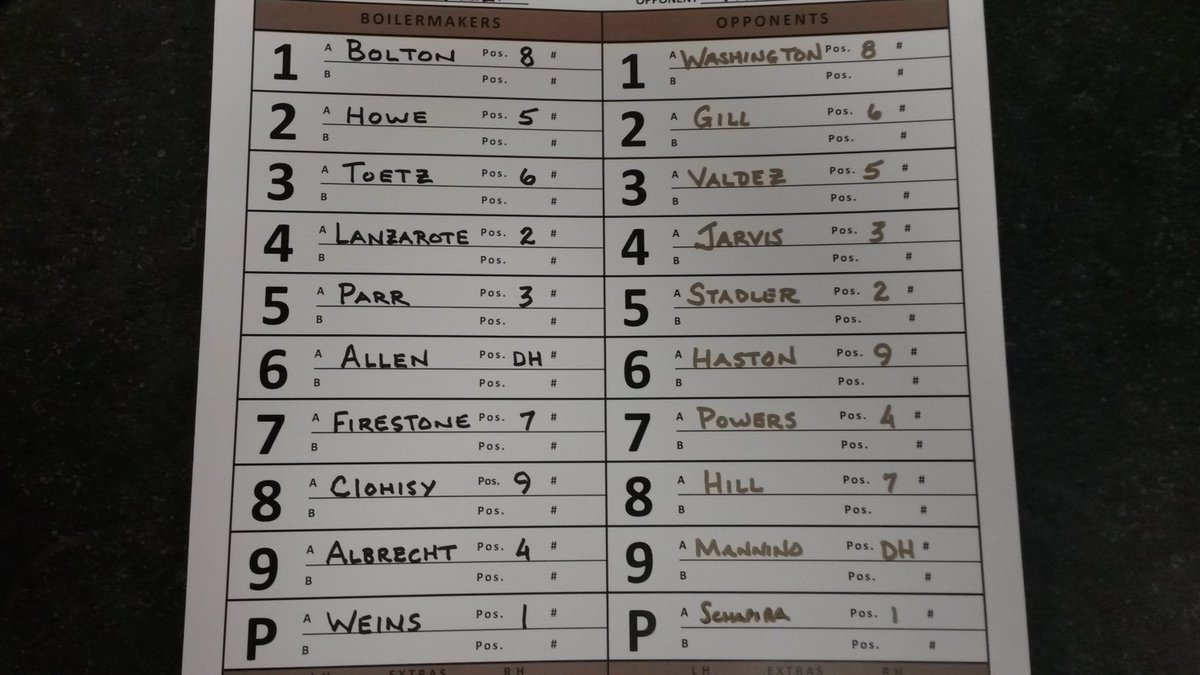 BOILERMAKERS OPPONENTS
1 A BOLTON Pos. 8 # 1 A WASHINGTON Pos. 8 #
B Pos. # B Pos. #
2 A HOWE Pos. 5 # 2 A GILL Pos. 6 #
B Pos. # B Pos. #
3 A TOETZ Pos. 6 # 3 A VALDEZ Pos. 5 #
B Pos. # B Pos. #
4 A LANZAROTE Pos. 2 # 4 A JARVIS Pos. 3 #
B Pos. # B Pos. #
5 A PARR Pos. 3 # 5 A STADLER Pos. 2 #
B Pos. # B Pos. #
6 A ALLEN Pos. DH # 6 A HASTON Pos. 9 #
B Pos. # B Pos. #
7 A FIRESTONE Pos. 7 # 7 A POWERS Pos. 4 #
B Pos. # B Pos. #
8 A ClOHISY Pos. 9 # 8 A HILL Pos. 7 #
B Pos. # B Pos. #
9 A ALBRECHT Pos. 4 # 9 A MANNINO Pos. DH #
B Pos. # B Pos. #
P A WEINS Pos. 1 # P A SCHAPIRA Pos. 1 #
B Pos. # B Pos. #
LH EXTRAS RH LH EXTRAS RH